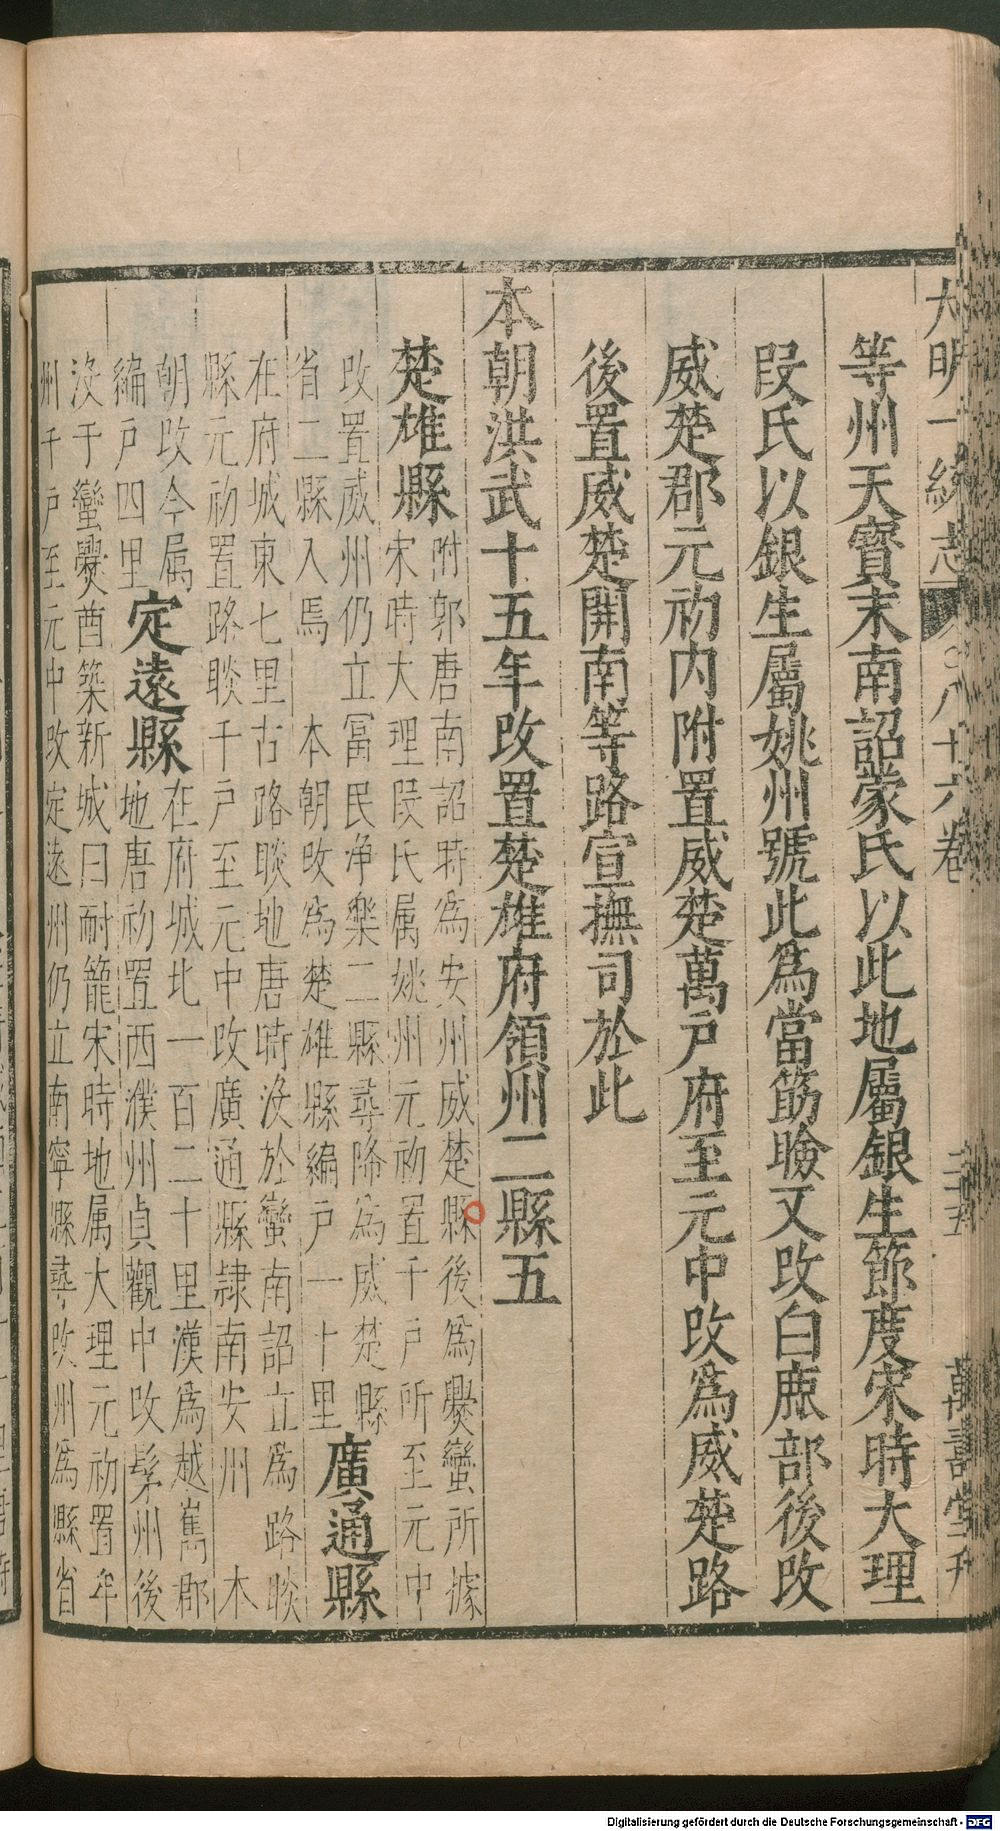 大明一統志 八十六卷 三五 萬壽堂刋
等州天寳末南詔蒙氏以此地屬銀生節度宋時大理
段氏以銀生屬姚州號此爲當筯瞼又改白鹿部後改
威楚郡元初内附置威楚萬戸府至元中改爲威楚路
後置威楚開南等路宣撫司於此
本朝洪武十五年改置楚雄府領州二縣五
楚雄縣
附郭唐南詔時爲安州威楚縣後爲㸑蠻所據
宋時大理段氏属姚州元初置千戸所至元中
改置威州仍立冨民淨樂二縣尋降爲威楚縣
省二縣入焉 本朝改爲楚雄縣編戸一十里
廣通縣
在府城東七里古路睒地唐時没於蠻南詔立爲路睒
縣元初置路睒千戸至元中改廣通縣隷南安州 本
朝改今属
編戸四里
定遠縣
在府城北一百二十里漢爲越嶲郡
地唐初置西濮州貞觀中改髳州後
没于蠻㸑酋築新城曰耐籠宋時地属大理元初置牟
州千戸至元中改定遠州仍立南寧縣尋改州爲縣省
Digitalisierung gefördert durch die Deutsche Forschungsgemeinschaft - DFG